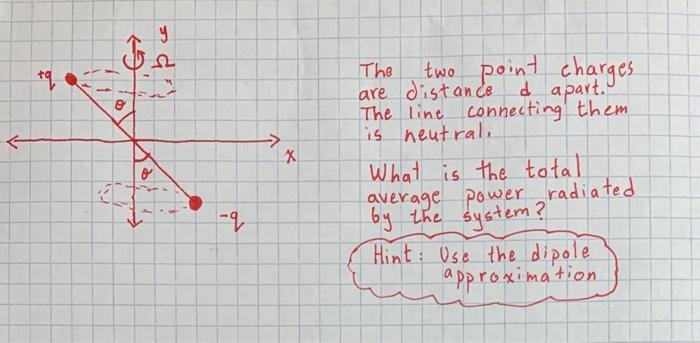 y
Ω
+q
θ
x
θ
-q
The two point charges
are distance d apart.
The line connecting them
is neutral.
What is the total
average power radiated
by the system?
Hint: Use the dipole
approximation